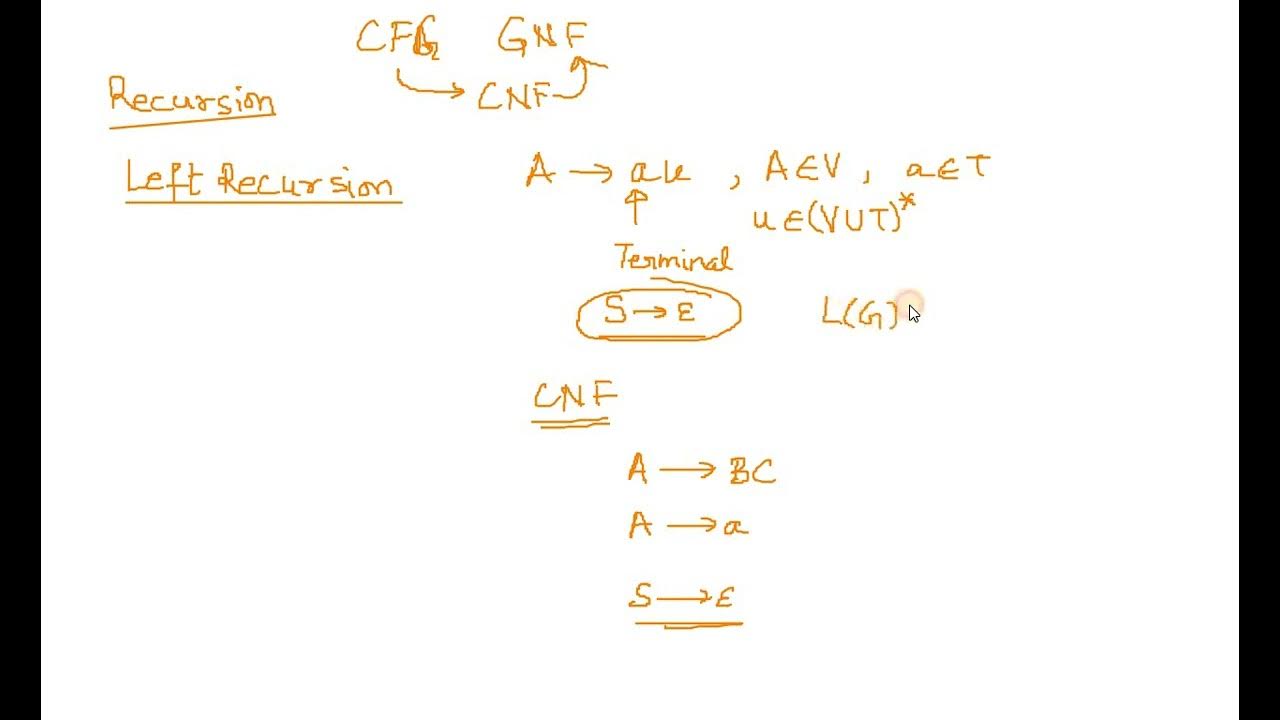 CFG GNF
CNF
Recursion
Left Recursion
A → au , A∈V , a∈T
u∈(V∪T)*
Terminal
S → ε L(G)
CNF
A → BC
A → a
S → ε